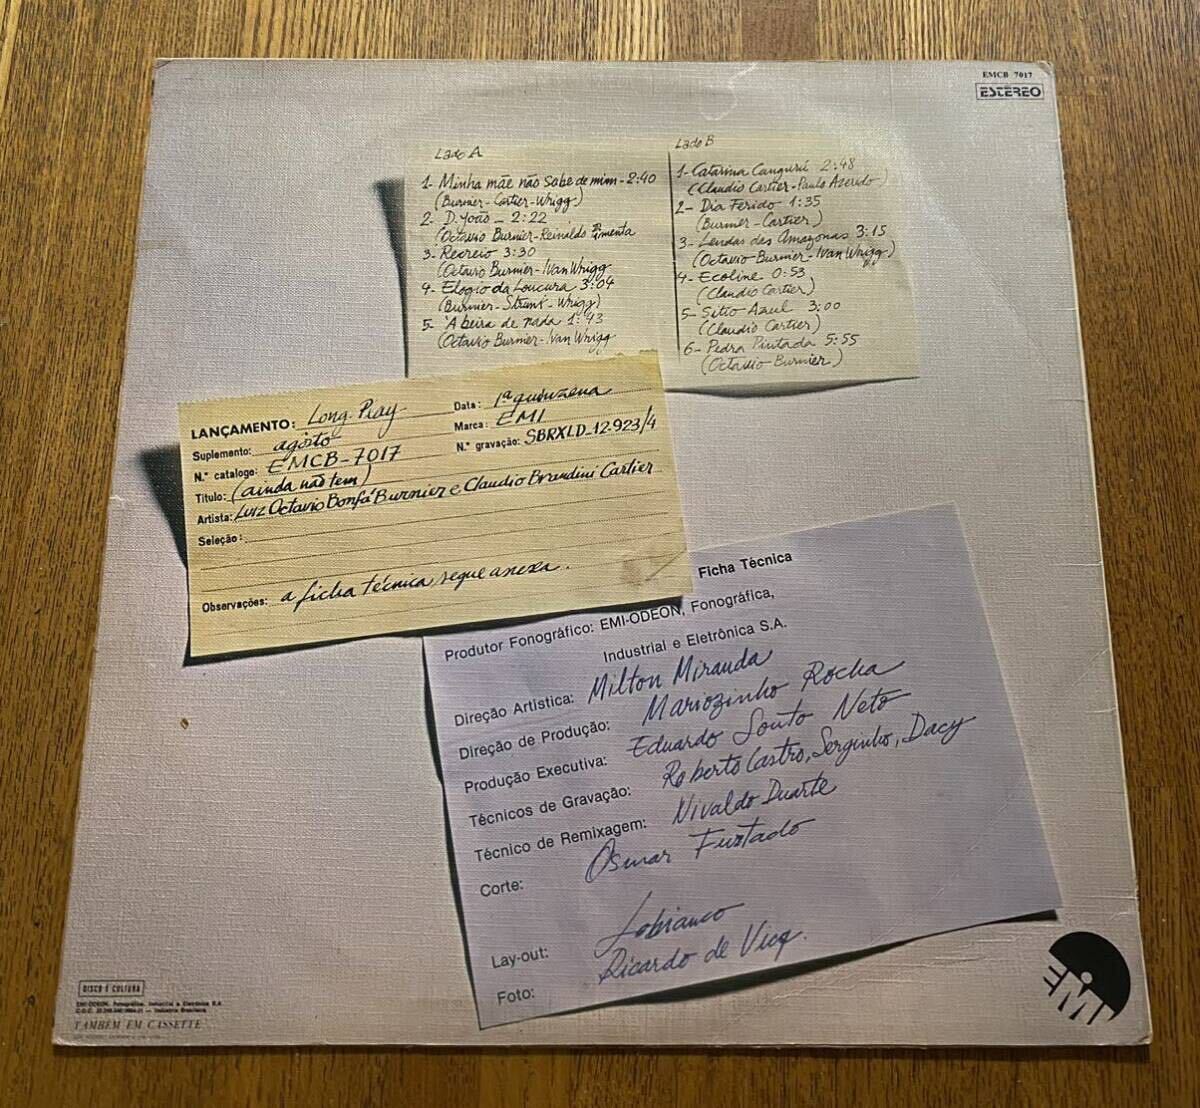 EMCB 7017
ESTÉREO
Lado A
1- Minha mãe não sabe de mim - 2:40
(Burnier - Cartier - Wrigg)
2- D. João - 2:22
(Octavio Burnier - Reinaldo Pimenta
3- Recreio 3:30
(Octavio Burnier - Ivan Wrigg
4- Elogio da Loucura 3:04
(Burnier - Strunk - Wrigg)
5- 'A beira de nada 1:43
(Octavio Burnier - Ivan Wrigg
Lado B
1- Catarina Canguru 2:48
(Claudio Cartier - Paulo Azeredo)
2- Dia Ferido 1:35
(Burnier - Cartier)
3- Lendas das Amazonas 3:15
(Octavio Burnier - Ivan Wrigg)
4- Ecoline 0:53
(Claudio Cartier)
5- Sitio Azul 3:00
(Claudio Cartier)
6- Pedra Pintada 5:55
(Octavio Burnier)
LANÇAMENTO: Long Play - Data: 1ª quinzena
Suplemento: agôsto Marca: EMI
N.º catalogo: EMCB-7017 N.º gravação: SBRXLD_12.923/4
Título: (ainda não tem)
Artista: Luiz Octavio Bonfá Burnier e Claudio Brandini Cartier
Seleção:
Observações: a ficha técnica segue anexa.
Ficha Técnica
Produtor Fonográfico: EMI-ODEON, Fonográfica,
Industrial e Eletrônica S.A.
Direção Artística: Milton Miranda
Direção de Produção: Mariozinho Rocha
Produção Executiva: Eduardo Souto Neto
Técnicos de Gravação: Roberto Castro, Serginho, Dacy
Técnico de Remixagem: Nivaldo Duarte
Corte: Osmar Furtado
Lay-out: Lobianco
Foto: Ricardo de Vicq.
DISCO É CULTURA
EMI-ODEON, Fonográfica, Industrial e Eletrônica S.A.
Indústria Brasileira
TAMBÉM EM CASSETTE
EMI